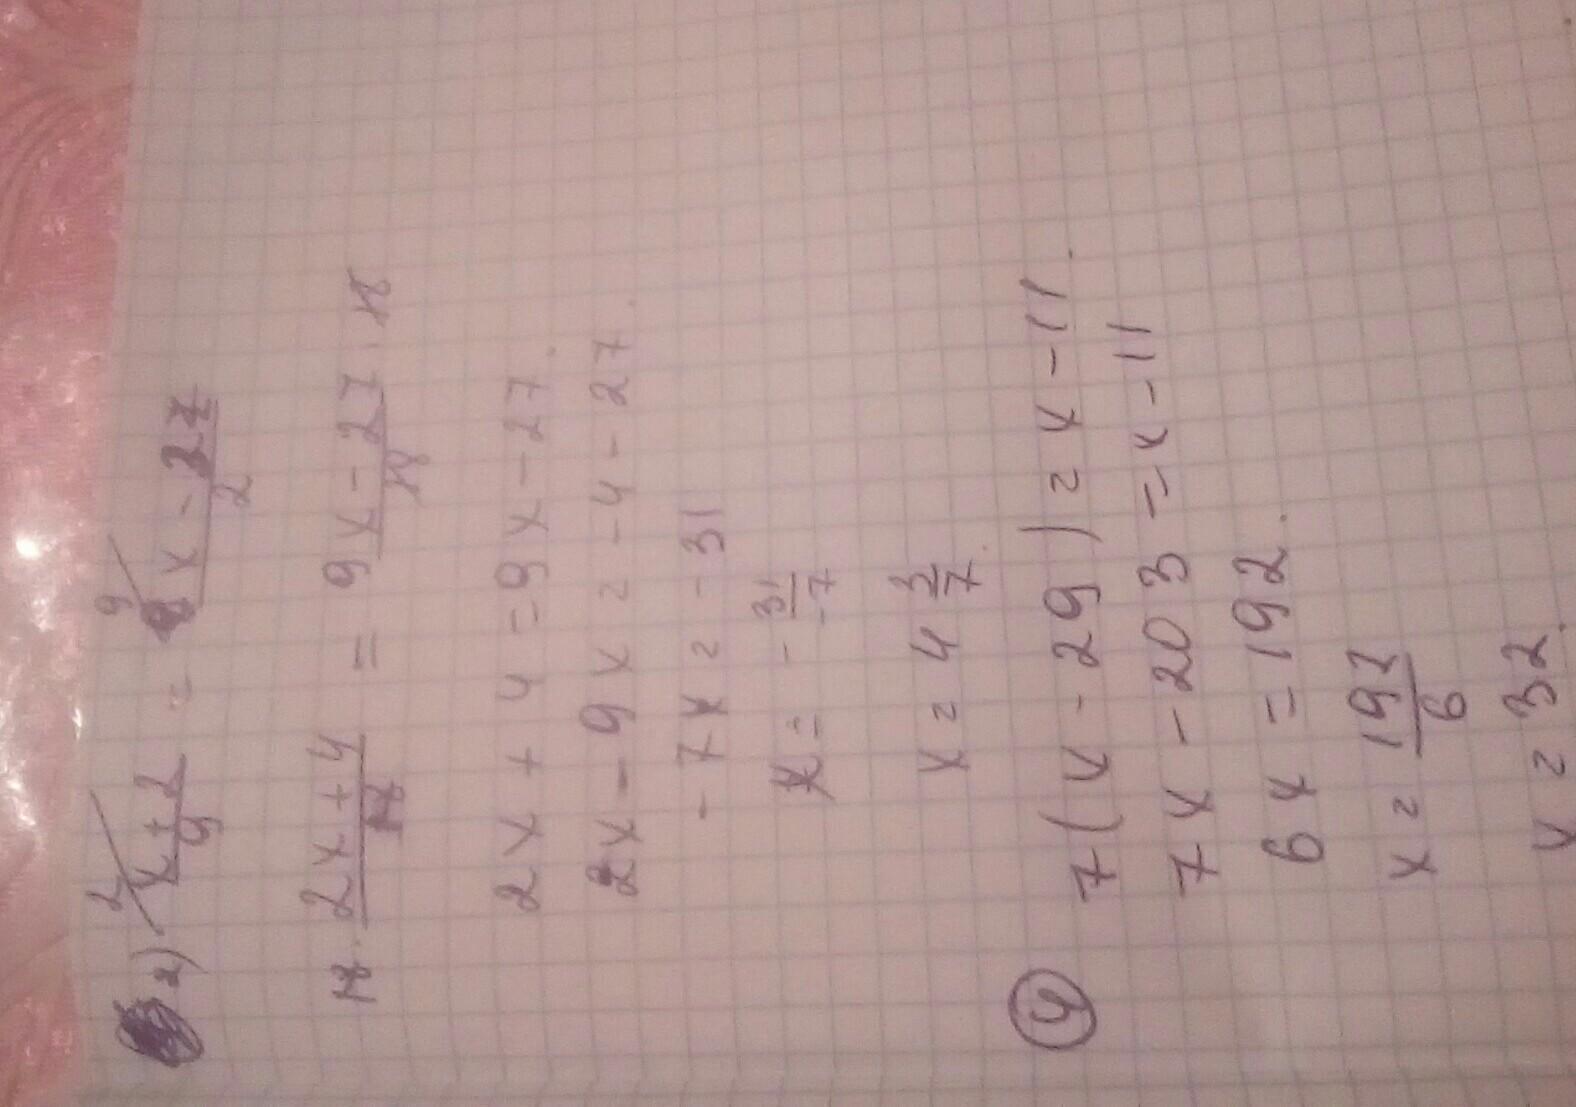 2) 2/ x+2/9 = 9/ x-27/2
18 · 2x+4/18 = 9x-27/18 · 18
2x + 4 = 9x - 27.
2x - 9x = -4 - 27.
-7x = -31
x = - 31/-7
x = 4 3/7.
④ 7(x - 29) = x - 11.
7x - 203 = x - 11
6x = 192.
x = 192/6
x = 32.